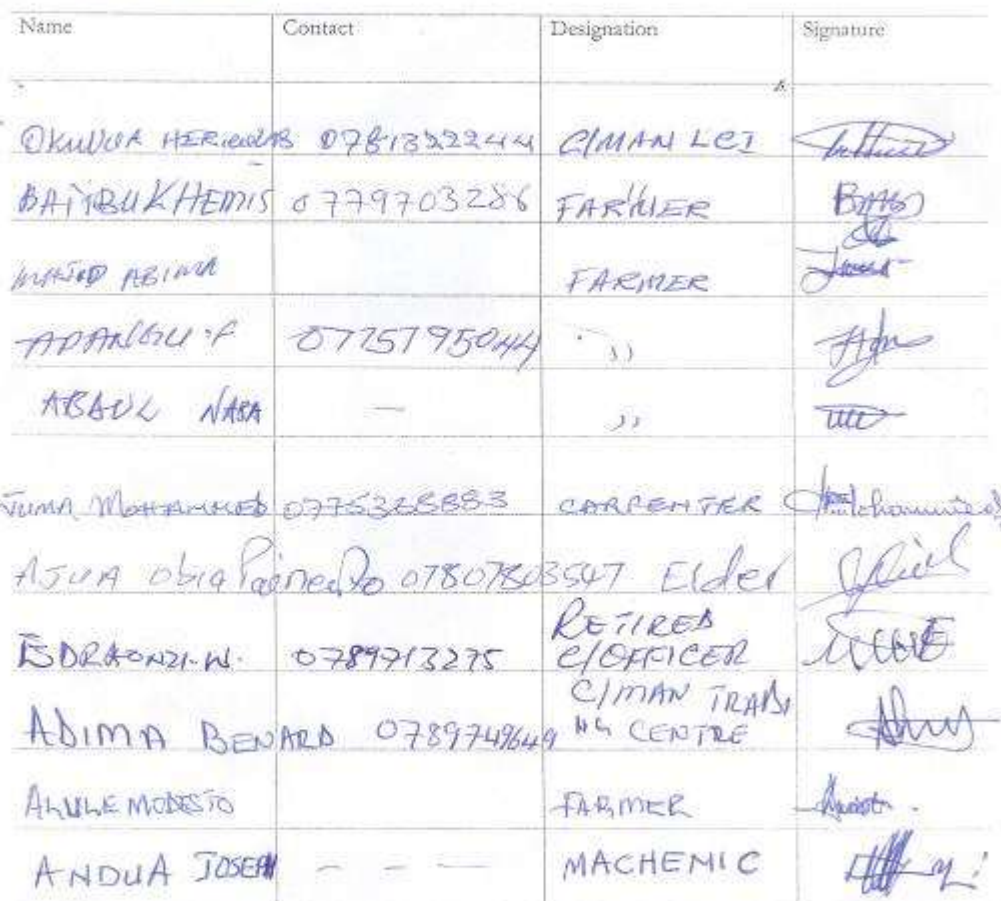 Name Contact Designation Signature
OKUDUA 0781322244 C/MAN LCI
BAITIBU KHEMIS 0779703286 FARMER
MAJID ABIMA FARMER
ADANGU .F 0775795044 ,,
ABAUL NASA — ,,
JUMA MOHAMMED CARPENTER
AJUA Obia 07807803547 Elder
EDRAONZI.W. 0789713275 RETIRED C/OFFICER
ADIMA BENARD 0789749649 C/MAN TRADI NG CENTRE
ALULE MODESTO FARMER
ANDUA JOSEPH - - — MACHEMIC